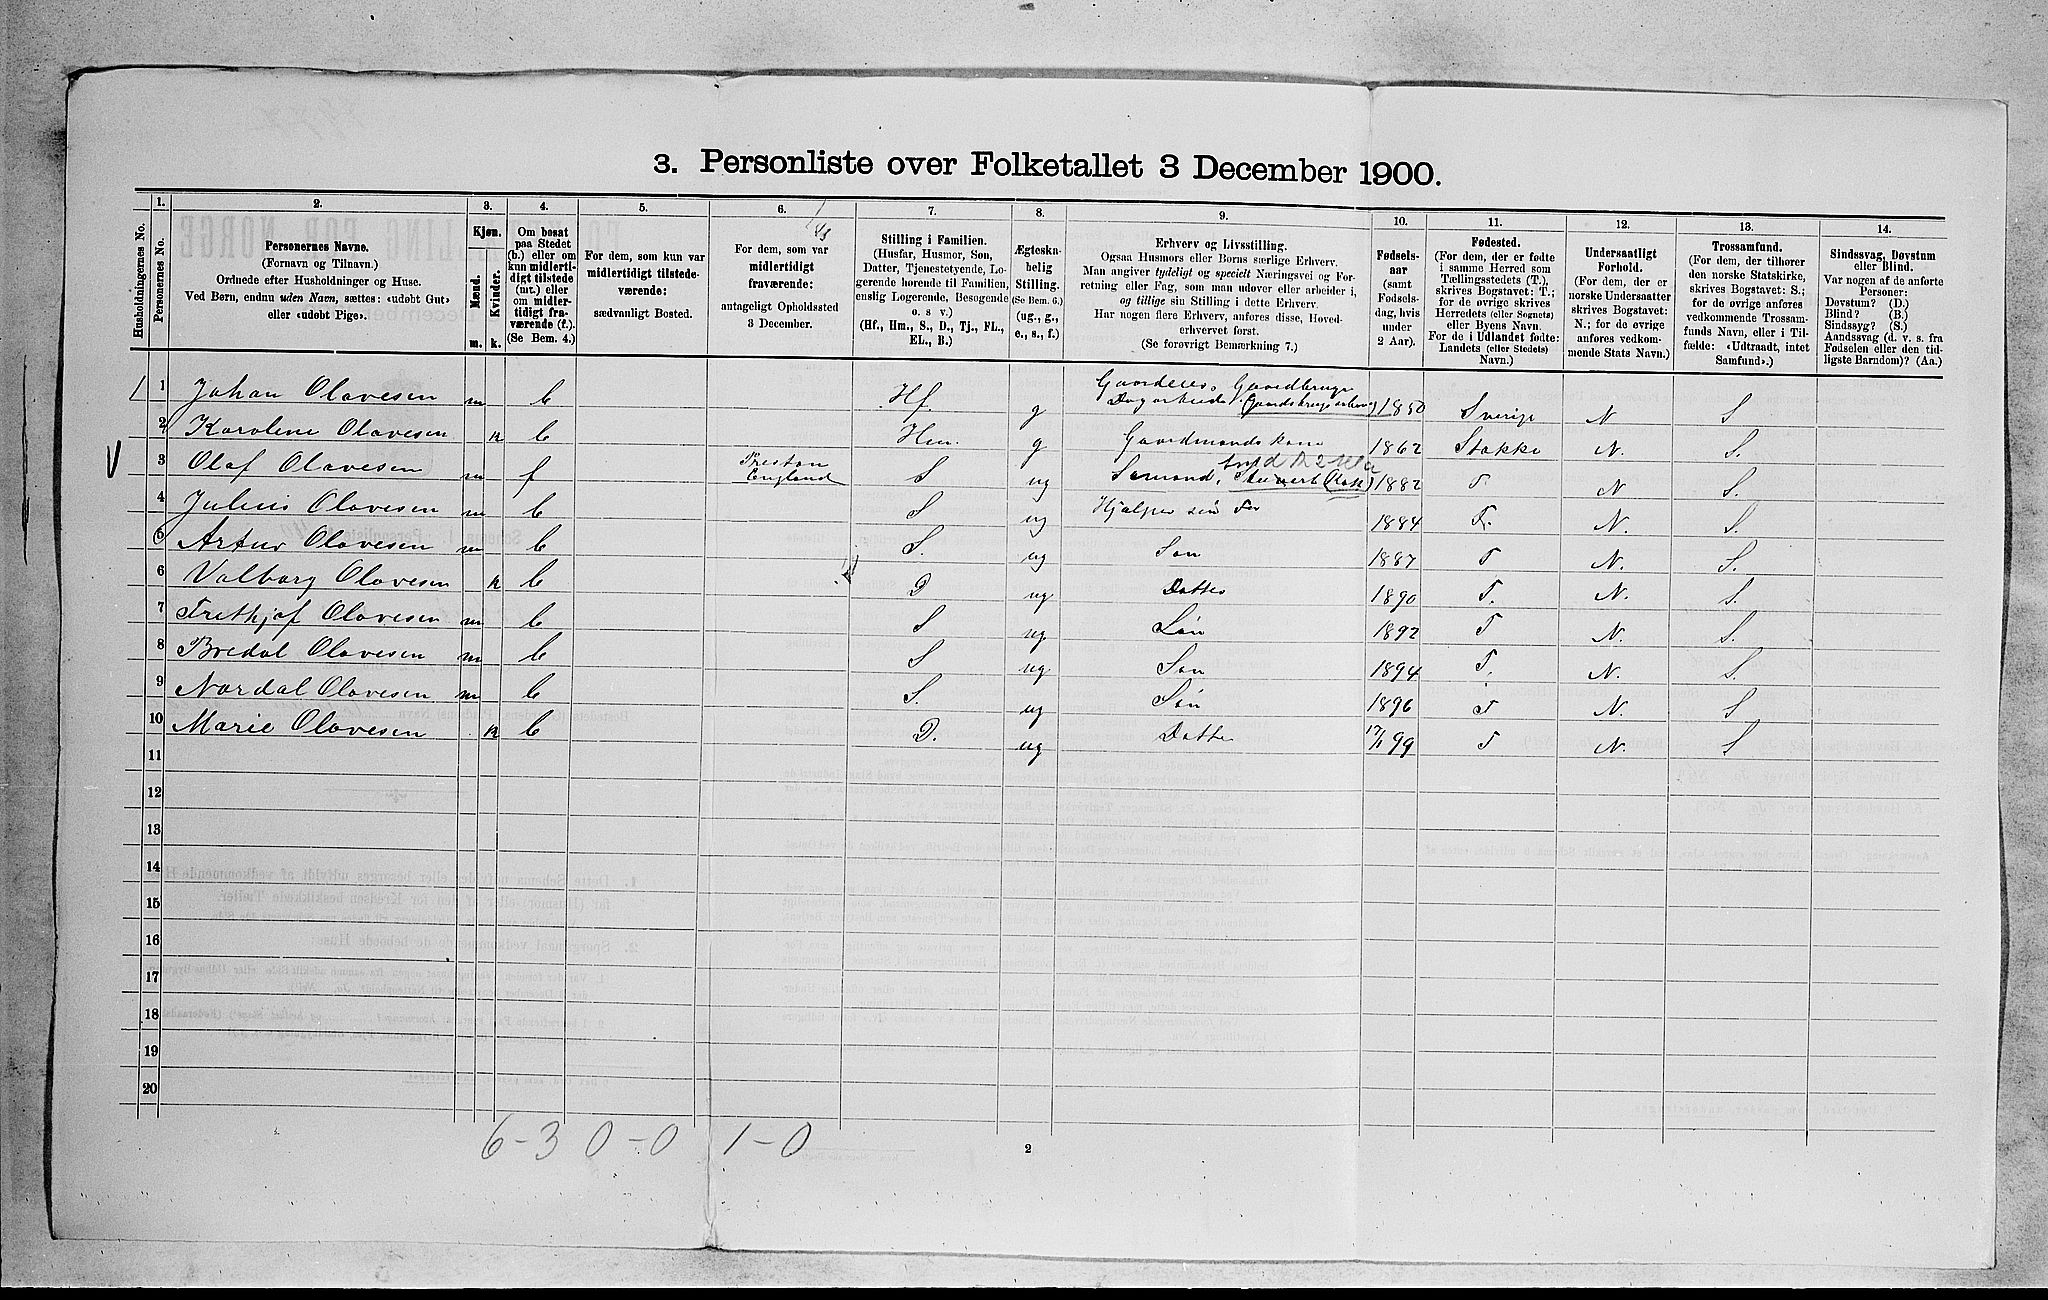 3. Personliste over Folketallet 3 December 1900.
Husholdningernes No.
1.
Personernes No.
2.
Personernes Navne.
(Fornavn og Tilnavn.)
Ordnede efter Husholdninger og Huse.
Ved Børn, endnu uden Navn, sættes: «udøbt Gut»
eller «udøbt Pige».
3.
Kjøn.
Mænd.
Kvinder.
m.
k.
4.
Om bosat
paa Stedet
(b.) eller om
kun midlerti-
digt tilstede
(mt.) eller
om midler-
tidigt fra-
værende (f.).
(Se Bem. 4.)
5.
For dem, som kun var
midlertidigt tilstede-
værende:
sædvanligt Bosted.
6.
For dem, som var
midlertidigt
fraværende:
antageligt Opholdssted
3 December.
7.
Stilling i Familien.
(Husfar, Husmor, Søn,
Datter, Tjenestetyende, Lo-
gerende hørende til Familien,
enslig Logerende, Besøgende
o. s v.)
(Hf., Hm., S., D., Tj., FL.,
EL., B.)
8.
Ægteska-
belig
Stilling.
(Se Bem. 6.)
(ug., g.,
e., s., f.)
9.
Erhverv og Livsstilling.
Ogsaa Husmors eller Børns særlige Erhverv.
Man angiver tydeligt og specielt Næringsvei og For-
retning eller Fag, som man udøver eller arbeider i,
og tillige sin Stilling i dette Erhverv.
Har nogen flere Erhverv, anføres disse, Hoved-
erhvervet først.
(Se forøvrigt Bemærkning 7.)
10.
Fødsels-
aar
(samt
Fødsels-
dag, hvis
under
2 Aar).
11.
Fødested.
(For dem, der er fødte
i samme Herred som
Tællingsstedets (T.),
skrives Bogstavet: T.;
for de øvrige skrives
Herredets (eller Sognets)
eller Byens Navn.
For de i Udlandet fødte:
Landets (eller Stedets)
Navn.)
12.
Undersaatligt
Forhold.
(For dem, der er
norske Undersaatter
skrives Bogstavet:
N.; for de øvrige
anføres vedkom-
mende Stats Navn.)
13.
Trossamfund.
(For dem, der tilhører
den norske Statskirke,
skrives Bogstavet: S.;
for de øvrige anføres
vedkommende Trossam-
funds Navn, eller i Til-
fælde: «Udtraadt, intet
Samfund».)
14.
Sindssvag, Døvstum
eller Blind.
Var nogen af de anførte
Personer:
Døvstum? (D.)
Blind? (B.)
Sindssyg? (S.)
Aandssvag (d. v. s. fra
Fødselen eller den tid-
ligste Barndom)? (Aa.)
1 Johan Olavesen m b Hf. g 1850 Sverige N S.
2 Karoline Olavesen k b Hm. g Gaardmandskone 1862 Stokke N. S.
3 Olaf Olavesen m f Preston England S ug Sømand, 1882 T. N S.
4 Julius Olavesen m b S ug Hjælper sin Far 1884 T. N. S.
5 Artur Olavesen m b S. ug Søn 1887 T N. S.
6 Valborg Olavesen k b D ug Datter 1890 T. N. S.
7 Frethjof Olavesen m b S ug Søn 1892 T N. S.
8 Bredal Olavesen m b S ug Søn 1894 T. N. S.
9 Nordal Olavesen m b S. ug Søn 1896 T N. S
10 Marie Olavesen k b D. ug Datter 17/1 99 T N. S
11
12
13
14
15
16
17
18
19
20
6 – 3 0 – 0 1 – 0
2